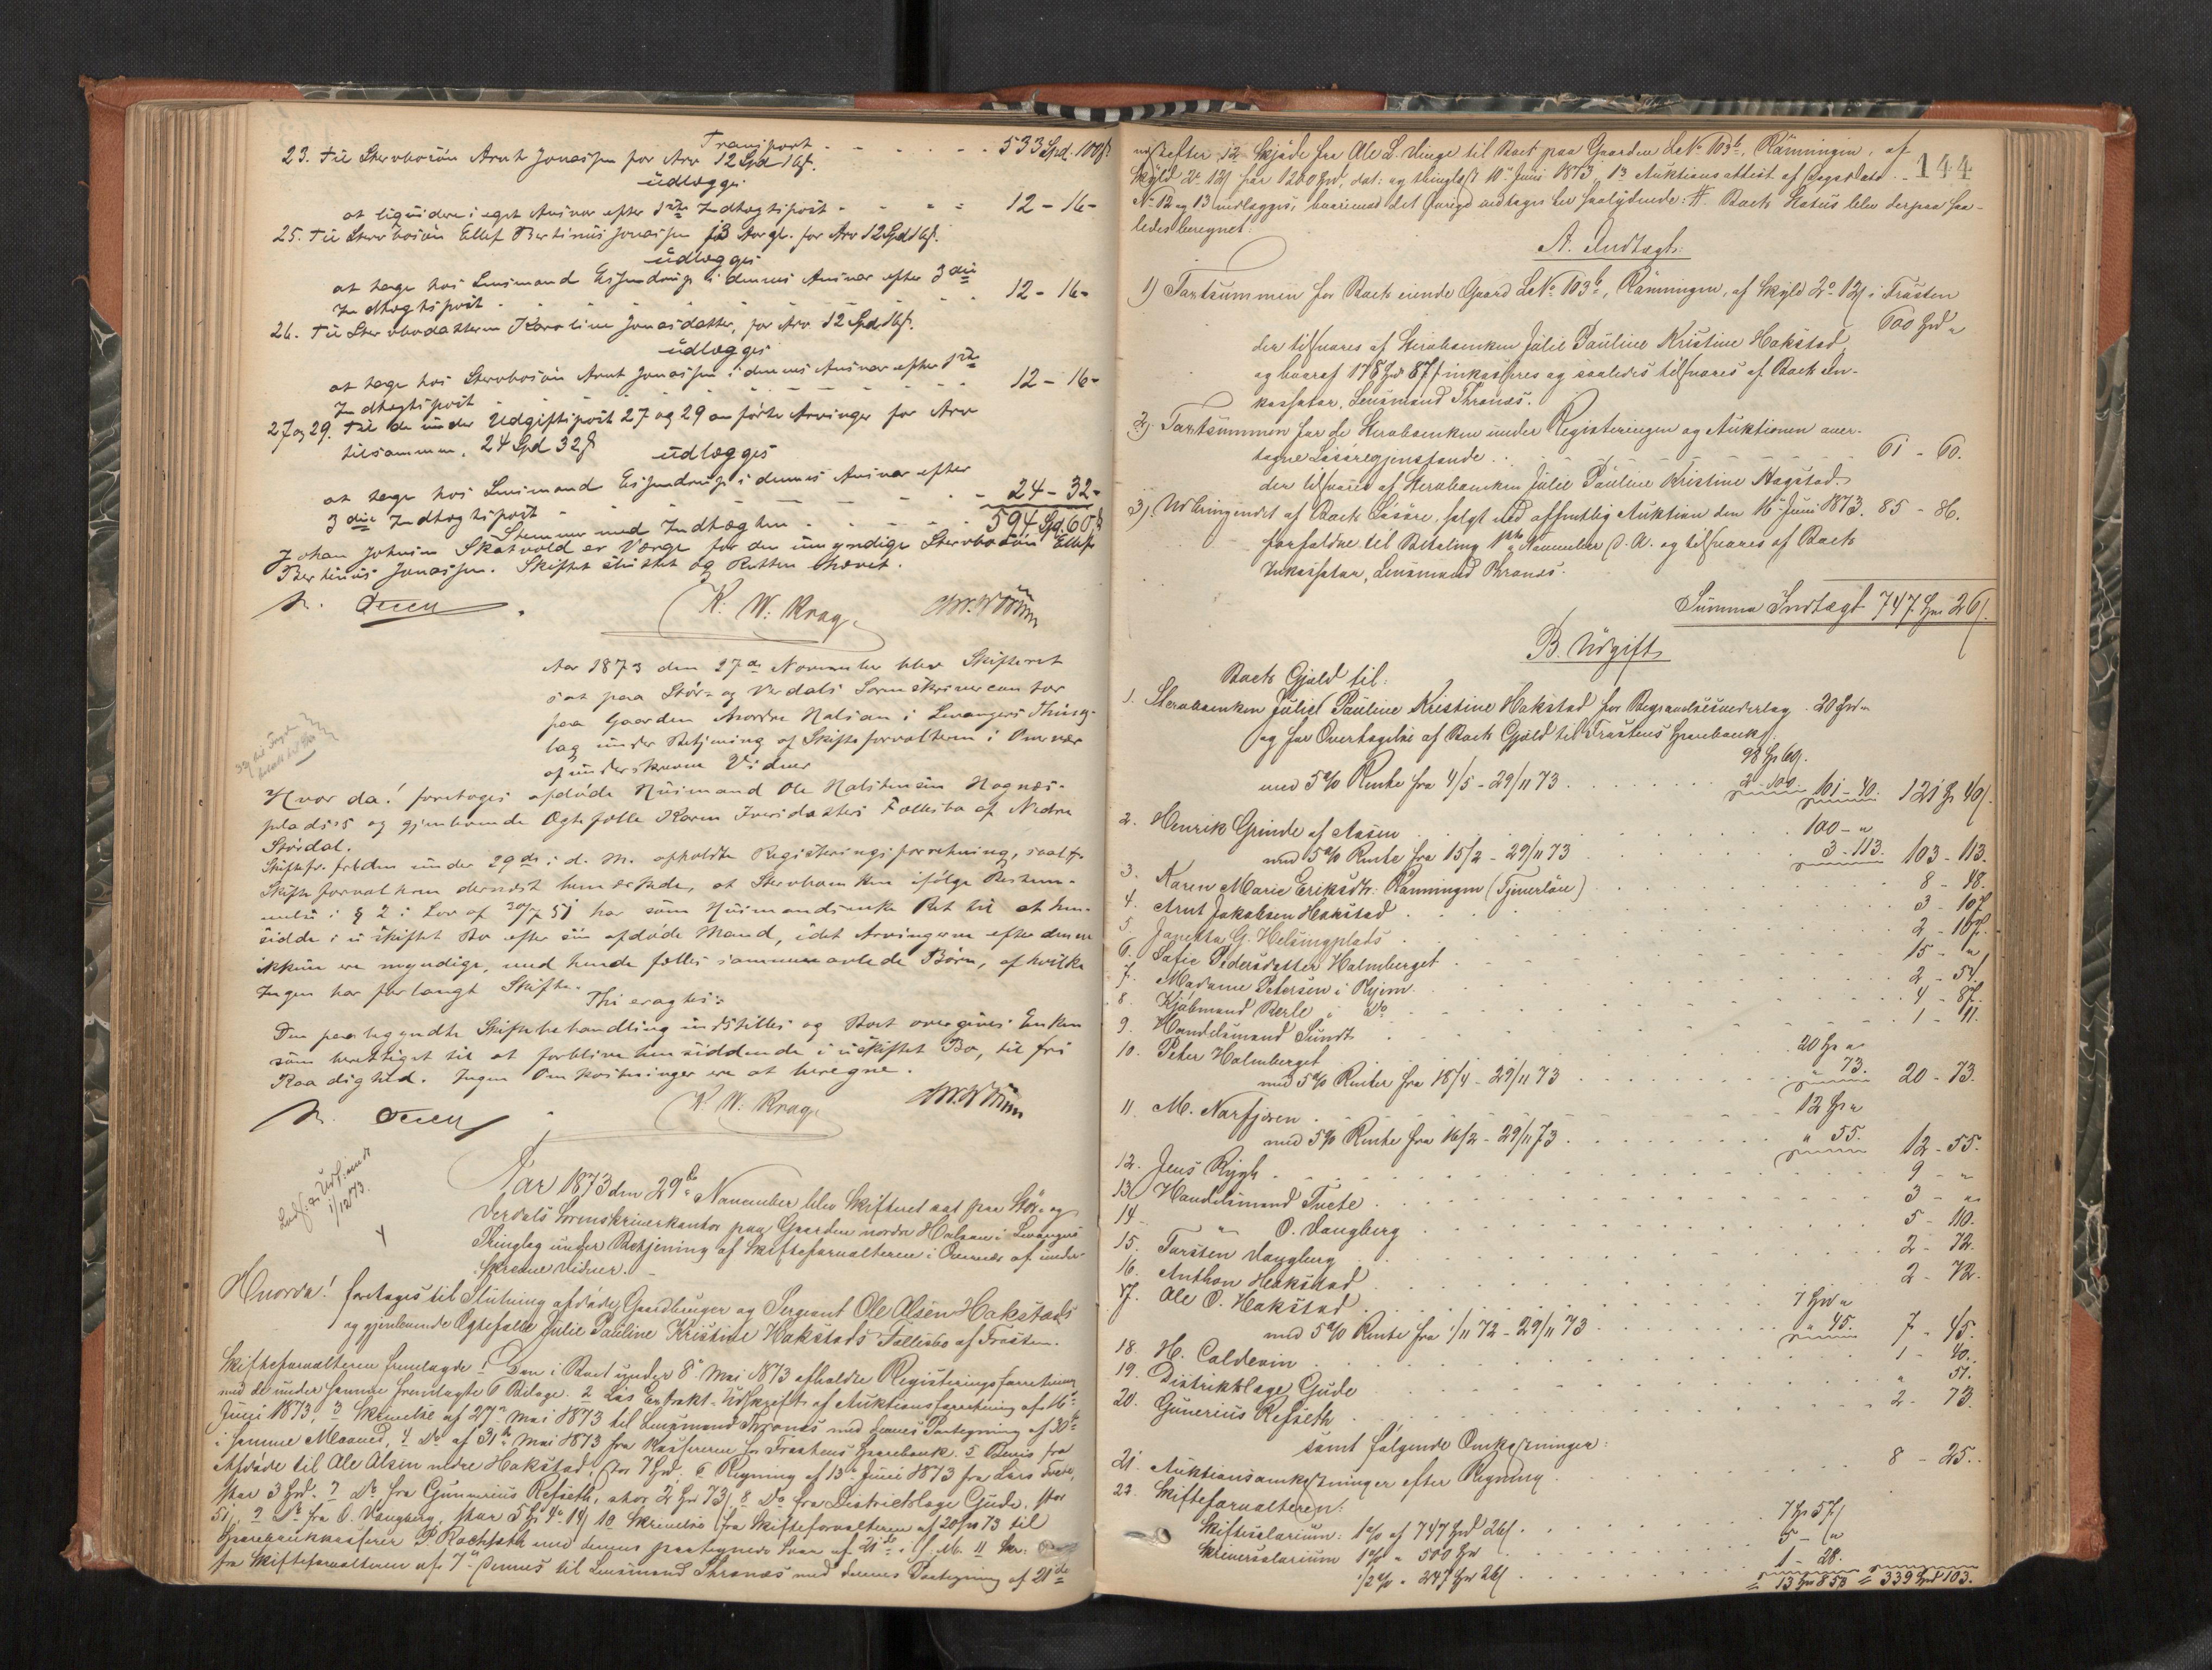 Transport - - - - - - 533 Spd. 100 ß
23. Til Stervbosøn Arnt Jonassen for Arv 12 Spd 16 ß.
udlægges
at liqvidere i eget Ansvar efter 1ste Indtægtspost - - - - 12 - 16 -
25. Til Stervbosøn Ellef Bertinus Jonassen for Arv 12 Spd 16 ß.
udlægges
at tage hos Lensmand i dennes Ansvar efter 3die
Indtægtspost - - - - - - 12 - 16 -
26. Til Stervbodatteren Karoline Jonasdatter, for Arv 12 Spd 16 ß.
udlægges
at tage hos Stervbosøn Arnt Jonassen i dennes Ansvar efter 1ste
Indtægtspost - - - - - - 12 - 16 -
27 og 29. Til de under Udgiftspost 27 og 29 anførte Arvinger for Arv
tilsammen, 24 Spd 32 ß
udlægges
at tage hos Lensmand i dennes Ansvar efter
3die Indtægtspost - - - - - - 24 - 32 -
Stemmer med Indtægten - - - - 594 Spd 60 ß
Johan Johnsen Skatvold er Værge for den umyndige Stervbosøn Ellef
Bertinus Jonassen. Skiftet sluttet og Retten hævet.
K. W. Krag.
Aar 1873 den 27de November blev Skifteret
sat paa Stør- og Verdals Sorenskrivercontor
paa Gaarden Nordre Halsan i Levangers Thing-
lag under Betjening af Skifteforvalteren i Overvær
af underskrevne Vidner
Hvorda! foretoges afdøde Huusmand Ole Halstensen Hognes-
plads's og gjenlevende Ægtefælle Karen Iversdatters Fællesbo af Nedre
Størdal.
Skifteforvalteren dernæst bemærkede, at Stervboenken ifølge Bestem-
melse i § 2 i Lov af 30/7 51 har som Huusmandsenke Ret til at hen-
sidde i uskiftet Bo efter sin afdøde Mand, idet Arvingerne efter denne
ikkun ere myndige, med hende fælles sammenavlede Børn, af hvilke
Ingen har forlangt Skifte.
Thi eragtes:
Den paabegyndte Skiftebehandling indstilles og Boet overgives Enken
som berettiget til at forblive hensiddende i uskiftet Bo, til fri
Raadighed. Ingen Omkostninger ere at beregne.
K. W. Krag.
1/12 73.
Aar 1873 den 29de November blev Skifteret sat paa Stør- og
Verdals Sorenskriverkontor paa Gaarden nordre Halsan i Levangers
Thinglag under Betjening af Skifteforvalteren i Overvær af under-
skrevne Vidner.
Hvorda! foretoges til Slutning afdøde Gaardbruger og Sergeant Ole Olsen Hakstads
og gjenlevende Ægtefælle Julie Pauline Kristine Hakstads Fællesbo af Frosten.
Skifteforvalteren fremlagde: 1 Den i Boet under 8de Mai 1873 afholdte Registreringsforretning
med de under samme fremlagte 6 Bilage. 2 Løs Extrakt-Udskrift af Auktionsforretning af 16de
Juni 1873, 3 Skrivelse af 27de Mai 1873 til Lensmand Thronæs med dennes Paategning af 30te
i samme Maaned, 4 Do af 31te Mai 1873 fra Kassereren for Frostens Sparebank. 5 Bevis fra
Afdøde til Ole Olsen nedre Hakstad, stor 7 Spd. 6 Regning af 13de Juni 1873 fra Lars Tvete,
stor 3 Spd. 7 Do fra Gunnerius Refseth, stor 2 Spd 73 ß, 8 Do fra Districtslæge Gude, stor
51 ß, 9 Do fra O. Vangberg, stor 5 Spd 4 ort 14 ß 10 Skrivelse fra Skifteforvalteren af 20/11 73 til
Sparebankkasserer P. Rochseth med dennes paategnede Svar af 21de i f. M. 11 Skr:
fra Skifteforvalteren af 7de dennes til Lensmand Thronæs med dennes Paategning af 21de
144
næstefter, 12 Skjøde fra Ole L. Vinge til Boet paa Gaarden LNo 103b, Rønningen, af
Skyld 2 ort 12 ß for 1200 Spd, dat: og thinglæst 10de Juni 1873, 13 Auktionsattest af
No 12 og 13 vedlægges, hvorimod det øvrige vedtages der saalydende: # Boets Status blev derpaa saa-
ledes beregnet:
A. Indtægt:
1) Taxtsummen for Boets eiende Gaard LNo 103b, Rønningen, af Skyld 2 ort 12 ß i Frosten
600 Spd "
der tilsvares af Stervboenken Julie Pauline Kristine Hakstad,
og hvoraf 178 Spd 87 ß inkasseres og saaledes tilsvares af Boets In-
kassator, Lensmand Thronæs.
2). Taxtsummen for de Stervboenken under Registeringen og Auktionen over-
tagne Løsøregjenstande . . - - - - 61 - 60.
der tilsvares af Stervboenken Julie Pauline Kristine Hagstad.
3) Udbringendet af Boets Løsøre, solgt ved offentlig Auktion den 16de Juni 1873. 85 - 86.
forfaldne til Betaling 1ste November d. A. og tilsvares af Boets
Inkassator, Lensmand Thronæs.
Summa Indtægt 747 Spd 26 ß.
B. Udgift.
Boets Gjæld til:
1. Stervboenken Julie Pauline Kristine Hakstad for Begravelsesvederlag . 20 Spd "
og for Overtagelse af Boets Gjæld til Frostens Sparebank.
98 Sp 60 ß.
med 5 % Rente fra 4/5 - 29/11 73 . . . . 2 - 100 101 - 40. 121 Sp 40 ß.
2. Henrik Grinde af Aasen . . . . 100 - "
med 5 % Rente fra 15/2 - 29/11 73 . . . 3 - 113. 103 - 113.
3. Karen Marie Eriksdtr: Rønningen (Tjenerløn) . . . 8 - 48.
4. Arnt Jakobsen Hakstad . . . 3 - 107.
5. Janetta G. Helsingplads . . . 2 - 107.
6. Sofie Pedersdatter Halmberget . . . 15 - "
7. Madame Petersen i Thjem . . . 2 - 54
8. Kjøbmand Berle " Do . . . 4 - 87.
9. Handelsmand Sundt . . . 1 - 11.
10. Peter Halmberget . . . 20 Sp "
med 5 % Renter fra 18/4 - 29/11 73 . . . " 73. 20 - 73.
11. M. Narfjoren . . . 12 Sp "
med 5 % Rente fra 16/2 - 29/11 73 . . . " 55. 12 - 55.
12. Jens Rygh . . . 9 - "
13. Handelsmand Tvete . . . 3 - "
14. " O. Vangberg . . . 5 - 110.
15. Torsten Vangberg . . . 2 - 72.
16. Anthon Hakstad . . . 2 - 72.
17. Ole O. Hakstad . . . 7 Spd "
med 5 % Rente fra 1/11 72 - 29/11 73 . . . " 45. 7 - 45.
18. H. Coldevin . . . 1 - 40.
19. Distriktslæge Gude . . . " 51.
20. Gunerius Refseth . . . 2 - 73.
samt følgende Omkostninger:
21. Auktionsomkostninger efter Regning . . . 8 - 25.
22. Skifteforvalteren:
Skiftesalarium: 1 % af 747 Spd 26 ß . . . 7 Sp 57 ß
Skriversalarium 1 % " 500 Spd . . . 5 - "
1/2 % " 247 Spd 26 ß . . . 1 - 28.
= 13 Spd 85 ß = 339 Spd 103.